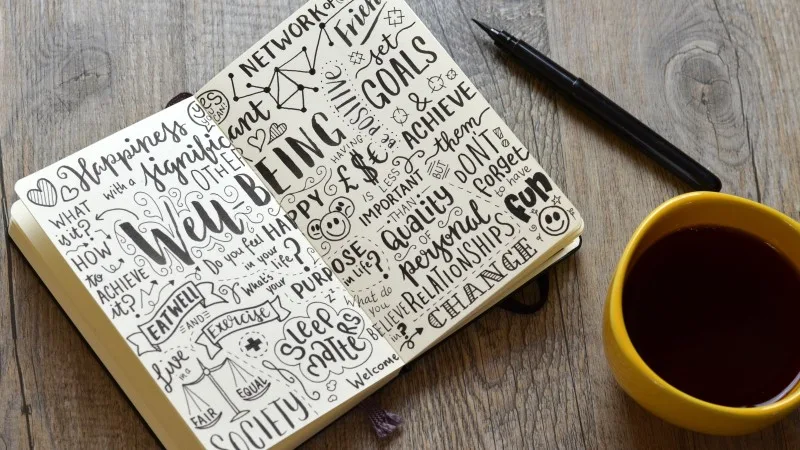 Happiness
with a significant
OTHER
WHAT
is it?
HOW
to
ACHIEVE
it?
Well-BEING
Do you feel HAPPY
in your
life?
What's your
PURPOSE
in life?
EAT WELL
AND
Exercise
Sleep
Matters
z
Live
in a
FAIR
EQUAL
SOCIETY
Welcome
CHANGE
yes
YOU
CAN
NETWORK of
set
GOALS
&
ACHIEVE
them
POSITIVE
HAVING
£$€
IS LESS
IMPORTANT
THAN
Quality
OF
personal
RELATIONSHIPS
BUT
DON'T
forget
to have
fun
What do
you
BELIEVE
in?